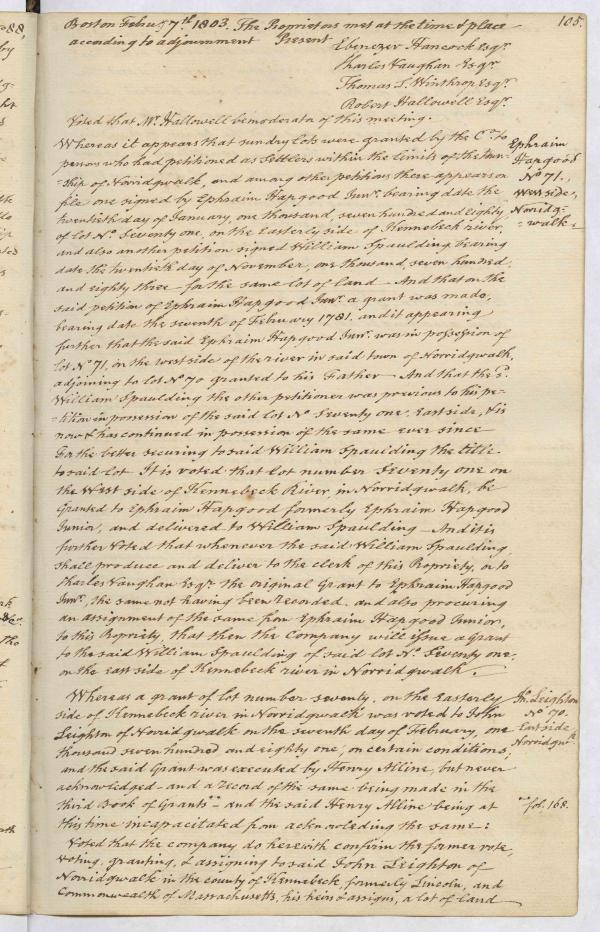 105.
Boston Feby 7th 1803. The Proprietors met at the time & place
according to adjournment Present Ebenezer Hancock Esqr.
Charles Vaughan Esqr.
Thomas L. Winthrop Esqr.
Robert Hallowell Esqr.
Voted that Mr. Hallowell be moderator of this meeting.
Whereas it appears that sundry lots were granted by the Co. to
persons who had petitioned as Settlers within the limits of the Town-
-ship of Norridgwalk, and among other petitions there appears on
file one signed by Ephraim Hapgood Junr. bearing date the
twentieth day of January, one thousand, seven hundred and eighty
of lot No. Seventy one, on the Easterly side of Kennebeck river,
and also another petition signed William Spaulding bearing
date the twentieth day of November, one thousand, seven hundred,
and eighty three - for the same lot of land - And that on the
said petition of Ephraim Hapgood Junr. a grant was made,
bearing date the seventh of February 1781, and it appearing
further that the said Ephraim Hapgood Junr. was in possession of
lot No 71, on the west side of the river in said town of Norridgwalk,
adjoining to lot No 70 granted to his Father - And that the sd.
William Spaulding the other petitioner was previous to his pe-
-tition in possession of the said lot No. Seventy one, East side, & is
now & has continued in possession of the same ever since
For the better securing to said William Spaulding the title
to said lot It is voted that lot number Seventy one on
the West side of Kennebeck River, in Norridgwalk, be
Granted to Ephraim Hapgood formerly Ephraim Hapgood
Junior, and delivered to William Spaulding - And it is
further Voted that whenever the said William Spaulding
shall produce and deliver to the clerk of this Propriety, or to
Charles Vaughan Esqr. the original Grant to Ephraim Hapgood
Junr., the same not having been recorded and also procuring
an assignment of the same from Ephraim Hapgood Junior,
to this Propriety, that then the Company will issue a Grant
to the said William Spaulding of said lot No. Seventy one,
on the East side of Kennebeck river in Norridgwalk.
Ephraim
Hapgood
No 71.
West side,
Norridg-
-walk.
Whereas a grant of lot number seventy, on the Easterly
side of Kennebeck river in Norridgwalk was voted to John
Leighton of Norridgwalk on the seventh day of February, one
thousand seven hundred and eighty one, on certain conditions,
and the said Grant was executed by Henry Alline, but never
acknowledged - and a record of the same being made in the
third Book of Grants - and the said Henry Alline being at
this time incapacitated from acknowleding the same:
Voted that the company do herewith confirm the former vote,
voting, granting, & assigning to said John Leighton of
Norridgwalk in the county of Kennebeck, formerly Lincoln, and
Commonwealth of Massachusetts, his heirs & assigns, a lot of land
Jn. Leighton
No 70.
East side
Norridgwk
fol. 168.